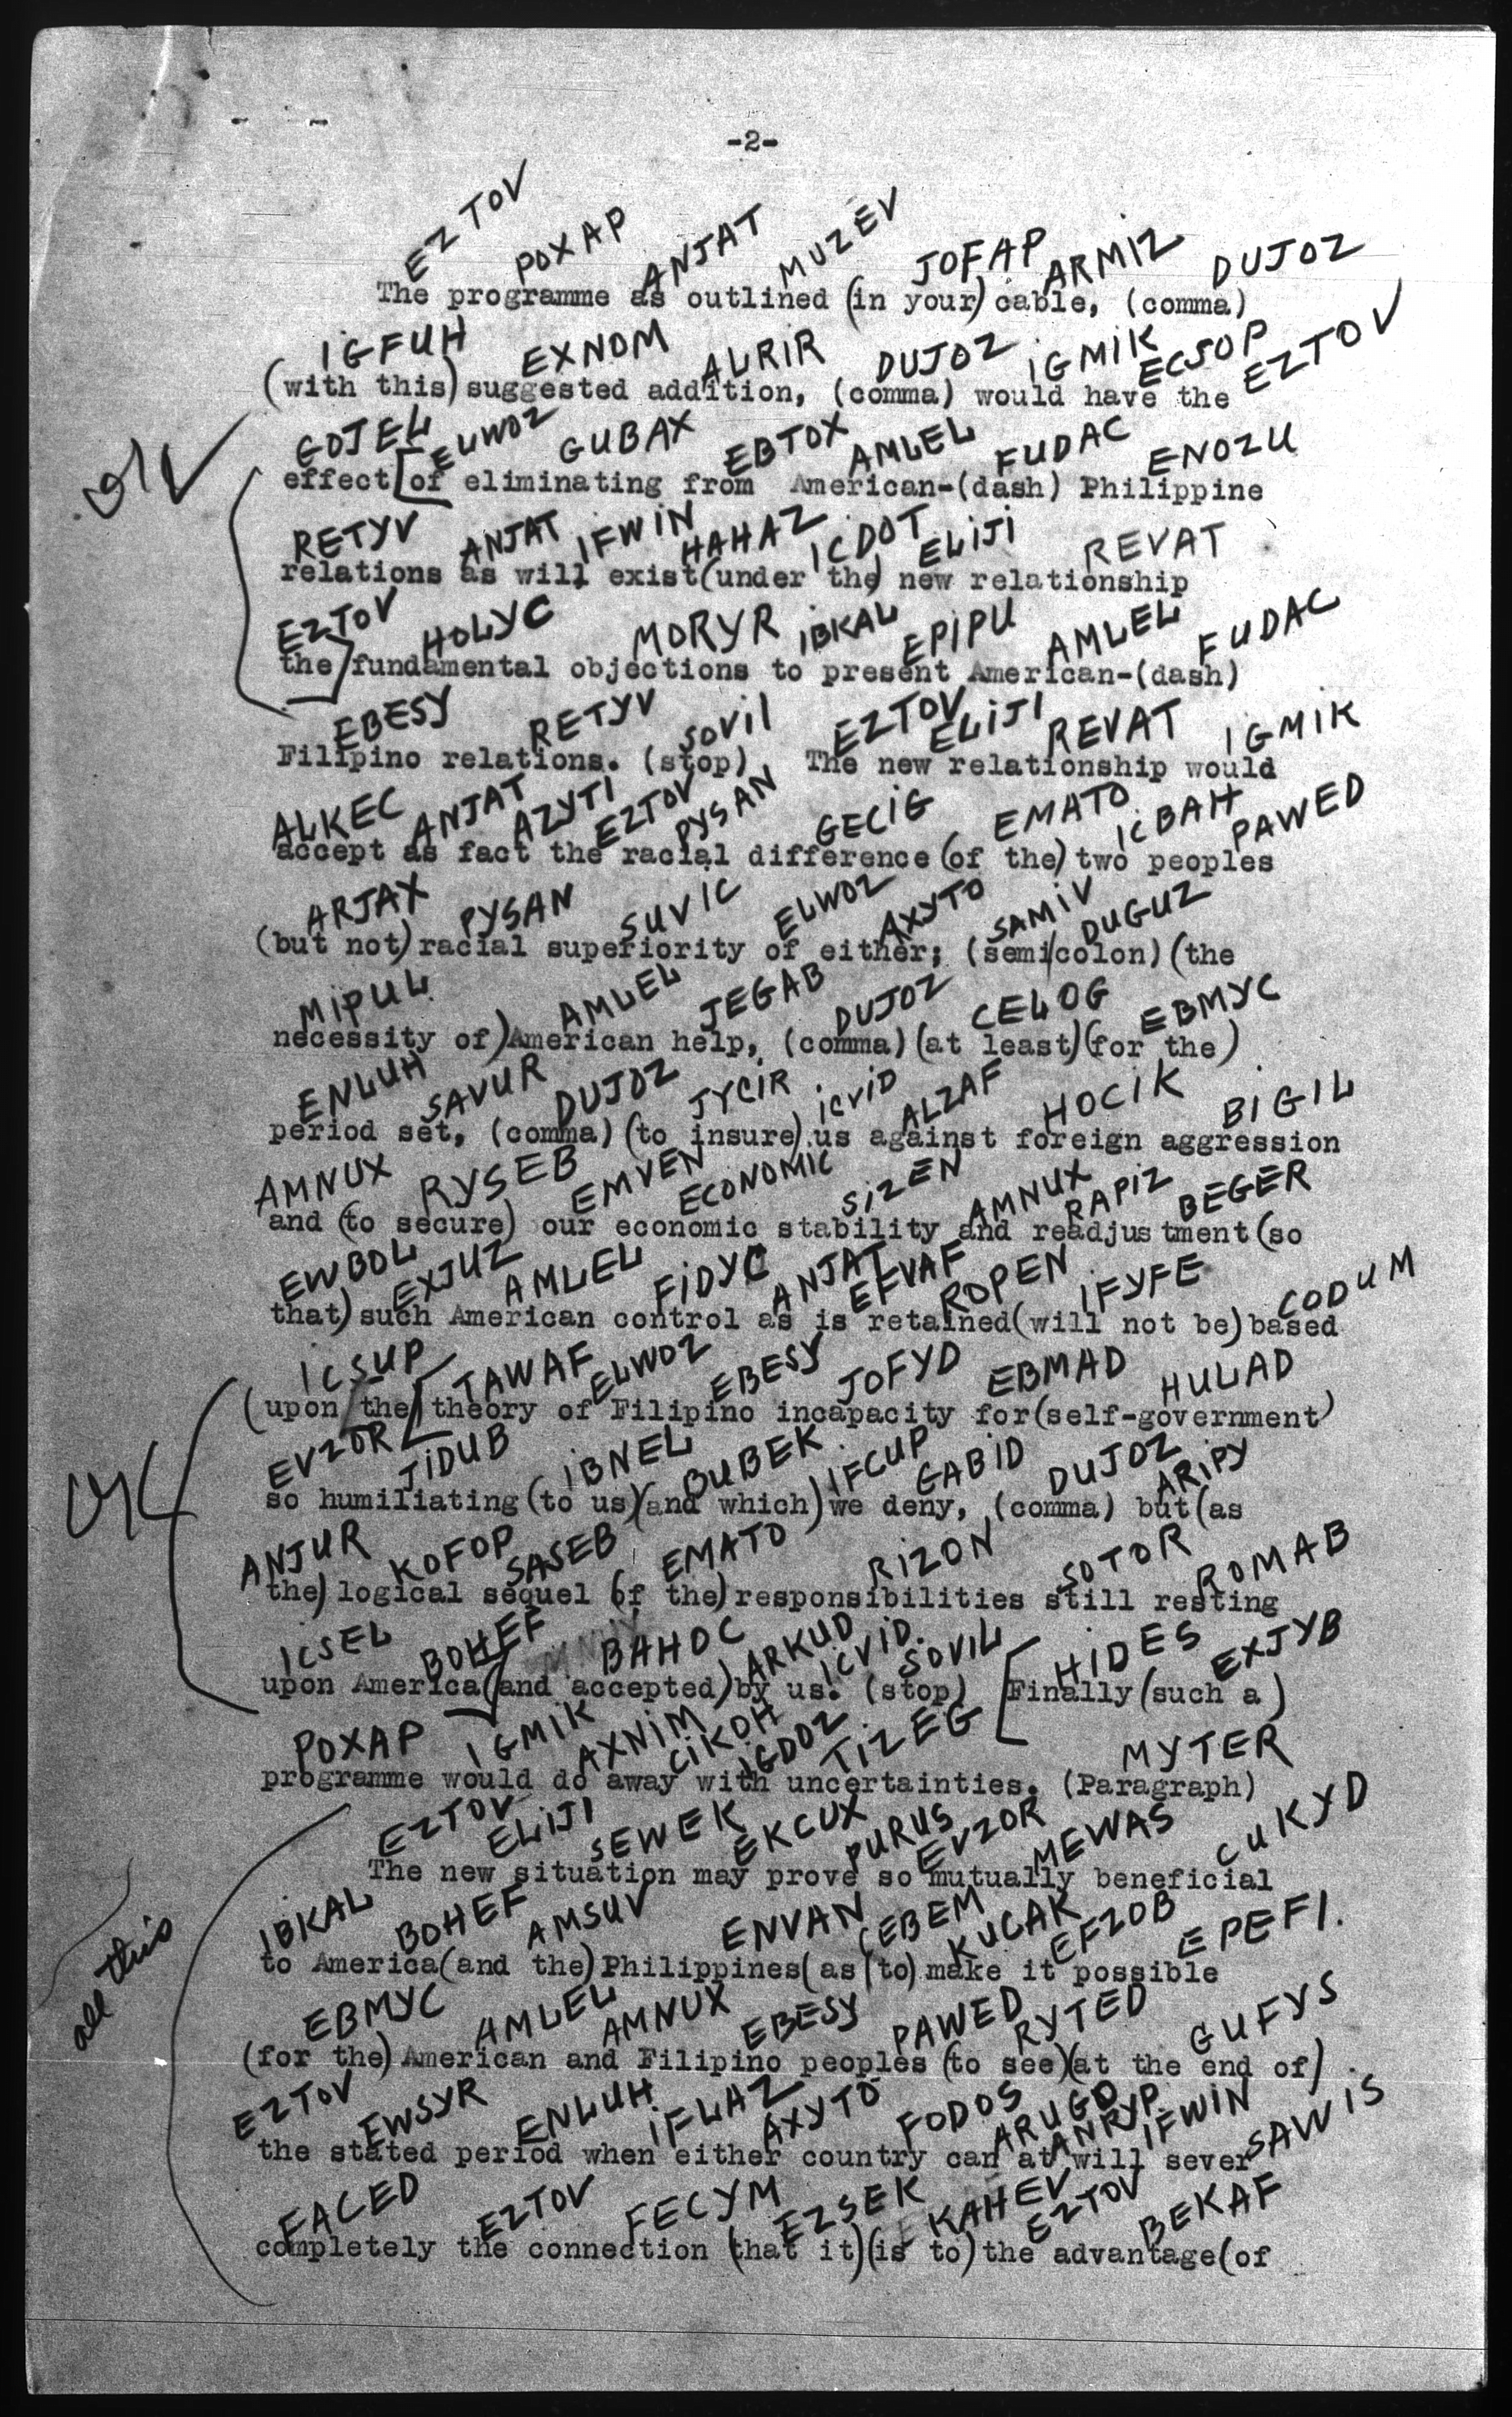 -2-
EZTOV POXAP ANJAT MUZEV JOFAP ARMIZ DUJOZ
The programme as outlined (in your) cable, (comma)
IGFUH EXNOM ALRIR DUJOZ IGMIK ECSOP EZTOV
(with this) suggested addition, (comma) would have the
GOJEL ELWOZ GUBAX EBTOX AMLEL FUDAC ENOZU
effect [of eliminating from American-(dash) Philippine
RETYV ANJAT IFWIN HAHAZ ICDOT ELIJI REVAT
relations as will exist (under the) new relationship
EZTOV HOLYC MORYR IBKAL EPIPU AMLEL FUDAC
the] fundamental objections to present American-(dash)
EBESY RETYV SOVIL EZTOV ELIJI REVAT IGMIK
Filipino relations. (stop) The new relationship would
ALKEC ANJAT AZYTI EZTOV PYSAN GECIG EMATO ICBAH PAWED
accept as fact the racial difference (of the) two peoples
ARJAX PYSAN SUVIC ELWOZ AXYTO SAMIV DUGUZ
(but not) racial superiority of either; (semi/colon) (the
MIPUL AMLEL JEGAB DUJOZ CELOG EBMYC
necessity of) American help, (comma) (at least) (for the)
ENLUH SAVUR DUJOZ JYCIR ICVID ALZAF HOCIK BIGIL
period set, (comma) (to insure) us against foreign aggression
AMNUX RYSEB EMVEN ECONOMIC SIZEN AMNUX RAPIZ BEGER
and (to secure) our economic stability and readjustment (so
EWBOL EXJUZ AMLEL FIDYC ANJAT EFVAF ROPEN IFYFE CODUM
that) such American control as is retained (will not be) based
ICSUP TAWAF ELWOZ EBESY JOFYD EBMAD HULAD
(upon the) [theory of Filipino incapacity for (self-government)
EVZOR JIDUB IBNEL BUBEK IFCUP GABID DUJOZ ARIPY
so humiliating (to us) (and which) we deny, (comma) but (as
ANJUR KOFOP SASEB EMATO RIZON SOTOR ROMAB
the) logical sequel (of the) responsibilities still resting
ICSEL BOHEF BAHOC ARKUD ICVID. SOVIL HIDES EXJYB
upon America] (and accepted) by us. (stop) [Finally (such a)
POXAP IGMIK AXNIM CIKOH IGDOZ TIZEG MYTER
programme would do away with uncertainties. (Paragraph)
EZTOV ELIJI SEWEK EKCUX PURUS EVZOR MEWAS CUKYD
The new situation may prove so mutually beneficial
IBKAL BOHEF AMSUV ENVAN CEBEM KUCAK EFZOB EPEFI.
all this
to America (and the) Philippines (as (to) make it possible
EBMYC AMLEL AMNUX EBESY PAWED RYTED GUFYS
(for the) American and Filipino peoples (to see) (at the end of)
EZTOV EWSYR ENLUH IFLAZ AXYTO FODOS ARUGO ANRYP IFWIN SAWIS
the stated period when either country can at will sever
FACED EZTOV FECYM EZSEK KAHEV EZTOV BEKAF
completely the connection (that it) (is to) the advantage (of